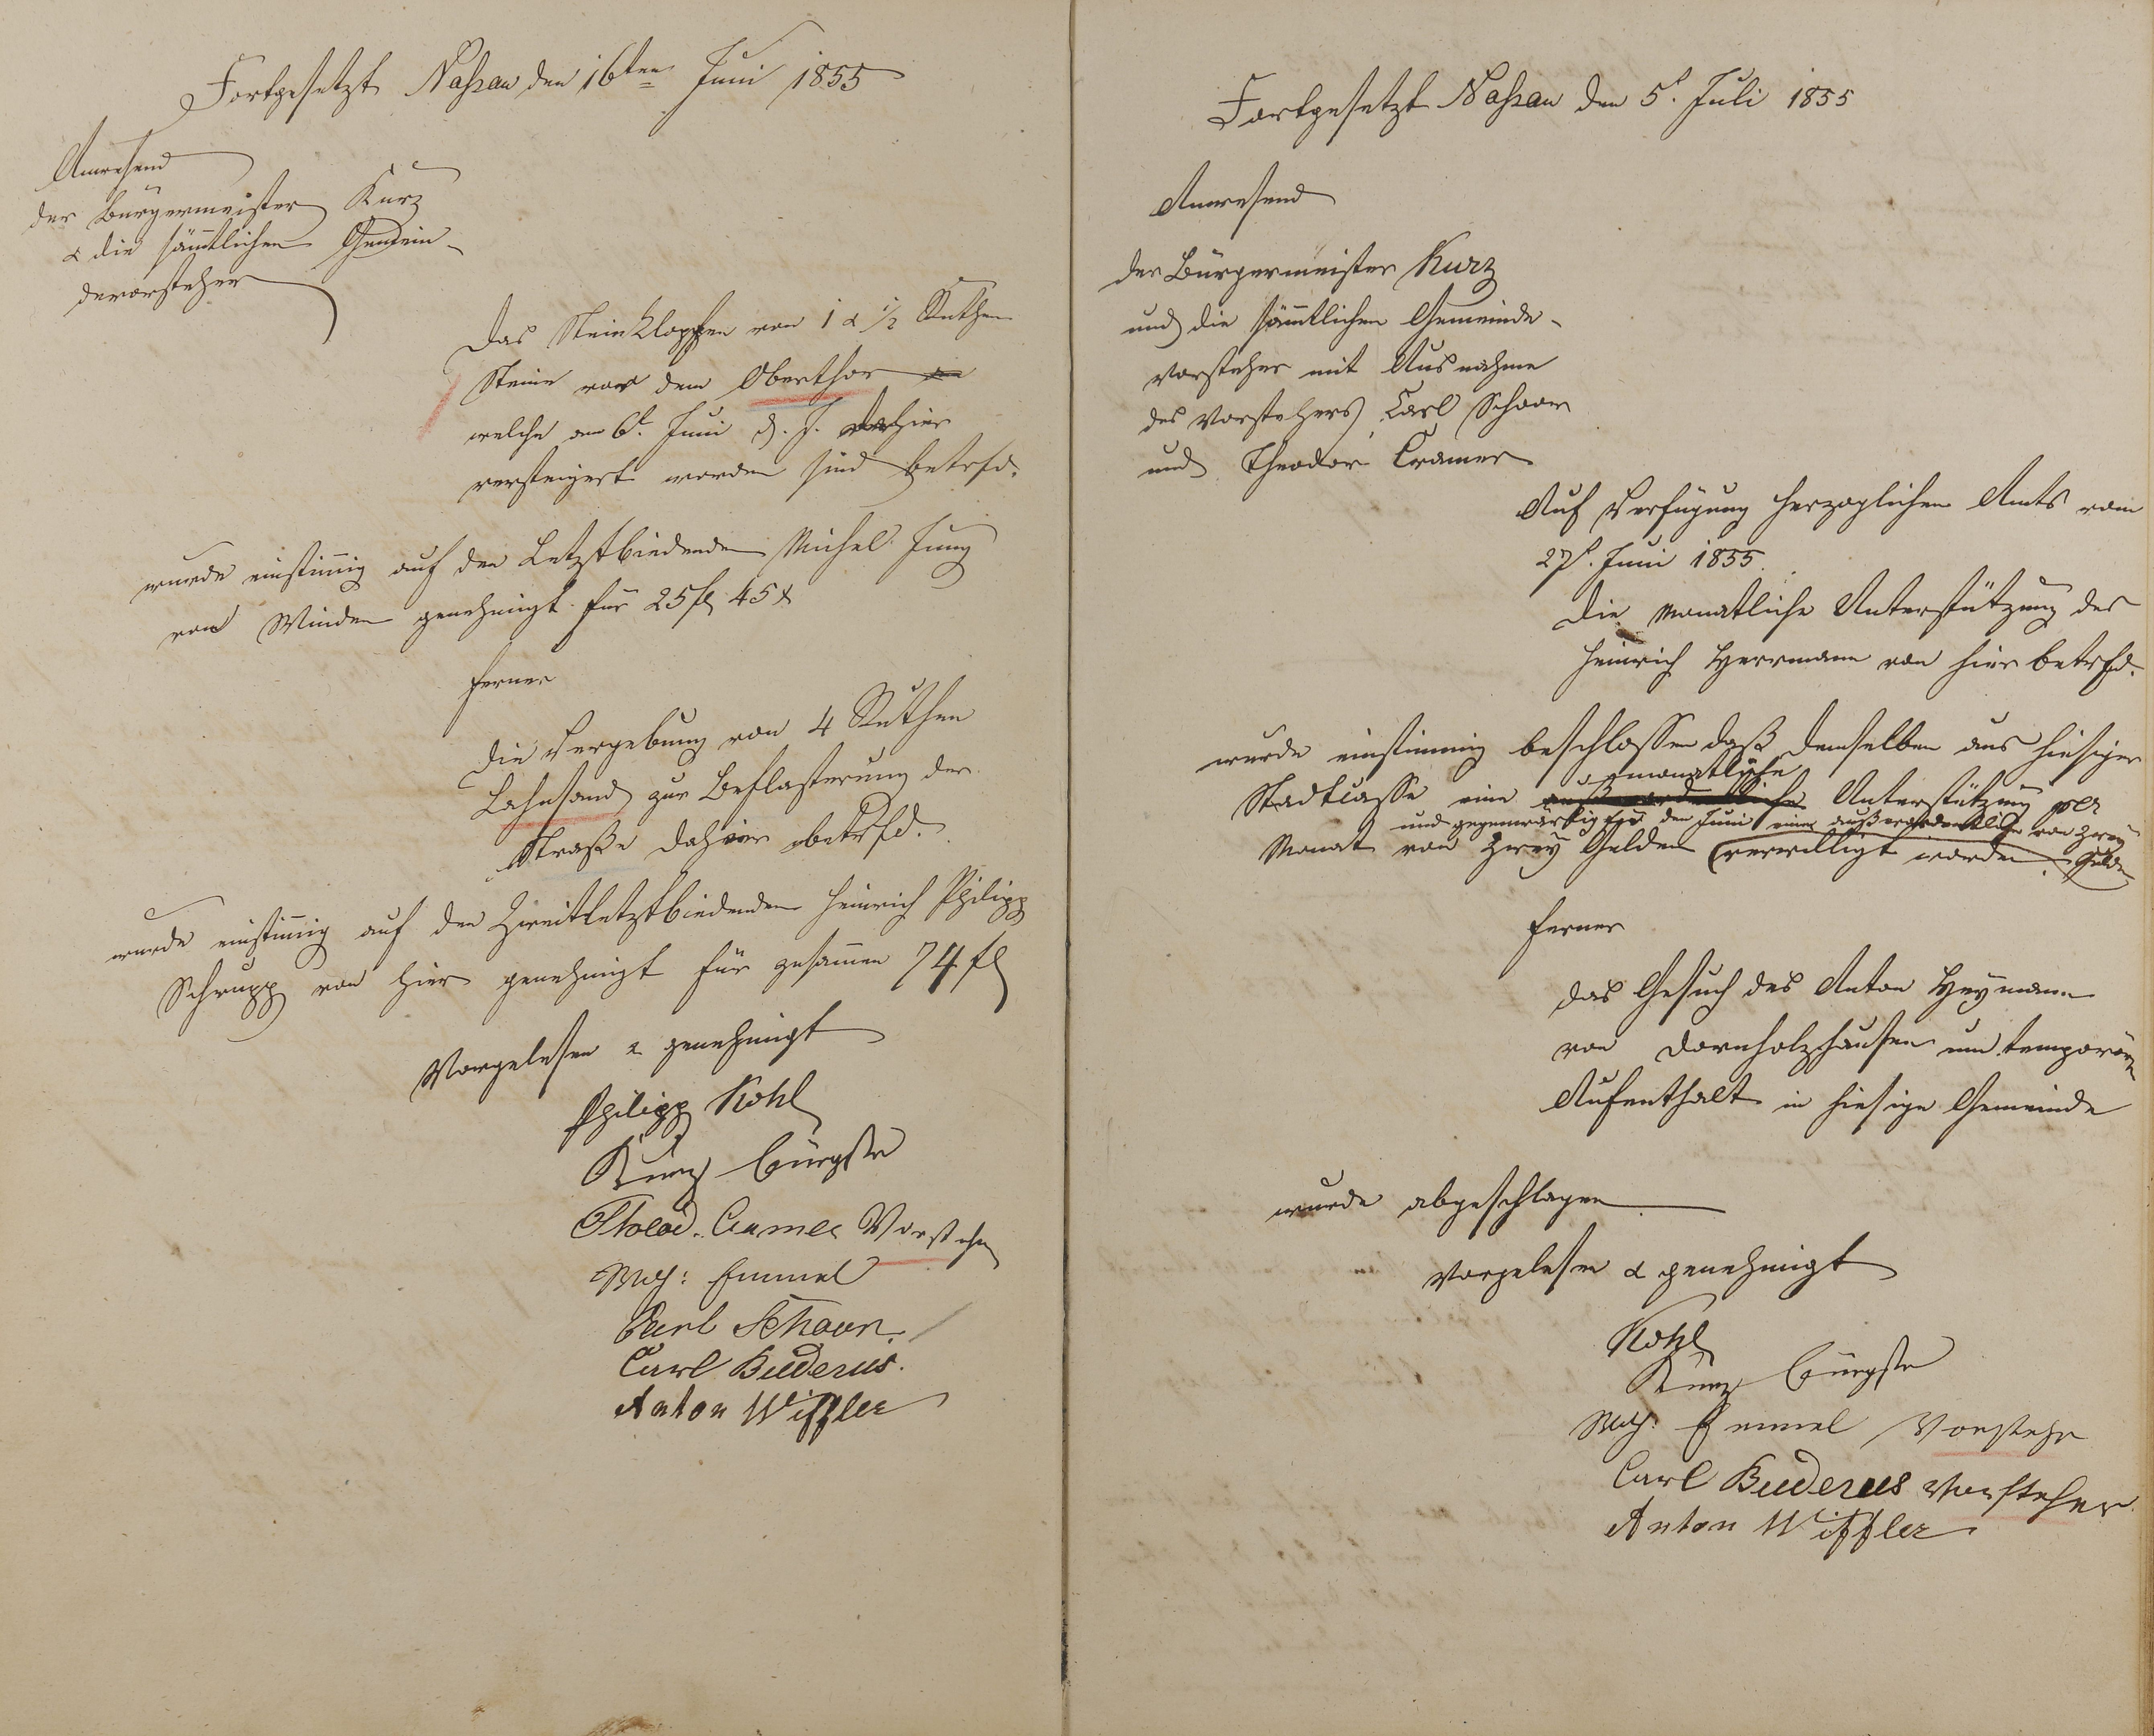 Fortgesetzt Naßau den 16ten Juni 1855
Anwesend
der Bürgermeister Kurz
& die sämtlichen Gemein-
devorsteher
Das Steinklopfen von 1 & 1/2 Ruthen
Steine vor dem Oberthor
welche am 6t. Juni d. J. dahier
versteigert worden sind betrfd.
wurde einstimig auf den Letztbiedenden Michel Jung
von Winden genehmigt für 25 fl 45 x
ferner
die Vergebung von 4 Ruthen
Lahnsand zur Beflasterung der
Straße dahier betrfd.
wurde einstimig auf den Zweitletztbiedenden Heinrich Philipp
Schrupp von hier genehmigt für zusamen 74 fl
Vorgelesen & genehmigt
Philipp Kohl
Kurz Bürgstr
Theod. Cramer Vorsteher
Emmel
Carl Schaar.
Carl Buderus.
Anton Wiffler
Fortgesetzt Naßau den 5t. Juli 1855
Anwesend
der Bürgermeister Kurz
und die sämtlichen Gemeinde-
vorsteher mit Ausnahme
des Vorstehers Carl Schaar
und Theodor Cramer
Auf Verfügung Herzoglichen Amts vom
27t. Juni 1855.
Die monatliche Unterstützung des
Heinrich Herrmann von hier betrfd.
wurde einstimmig beschlossen daß demselben aus hiesiger
monatliche
Stadtcasse eine außerordentliche Unterstützung per
und gegenwärtig für den Juni eine außerordentliche von zwey
Monat von zwey Gulden verwilligt worden. Gulden
ferner
das Gesuch des Anton Heymann
von Dornholzhausen um temporären
Aufenthalt in hiesige Gemeinde
wurde abgeschlagen
Vorgelesen & genehmigt
Kohl
Kurz Bürgstr
Emmel Vorsteher
Carl Buderus Vorsteher
Anton Wiffler